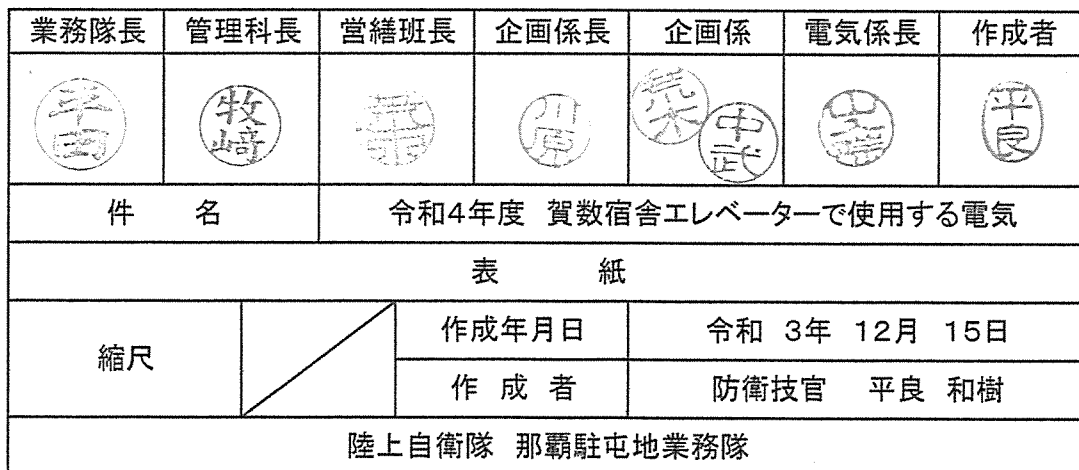 業務隊長 管理科長 営繕班長 企画係長 企画係 電気係長 作成者
牧﨑 川原 荒木 中武 平良
件 名 令和4年度 賀数宿舎エレベーターで使用する電気
表 紙
縮尺 作成年月日 令和 3年 12月 15日
作 成 者 防衛技官 平良 和樹
陸上自衛隊 那覇駐屯地業務隊